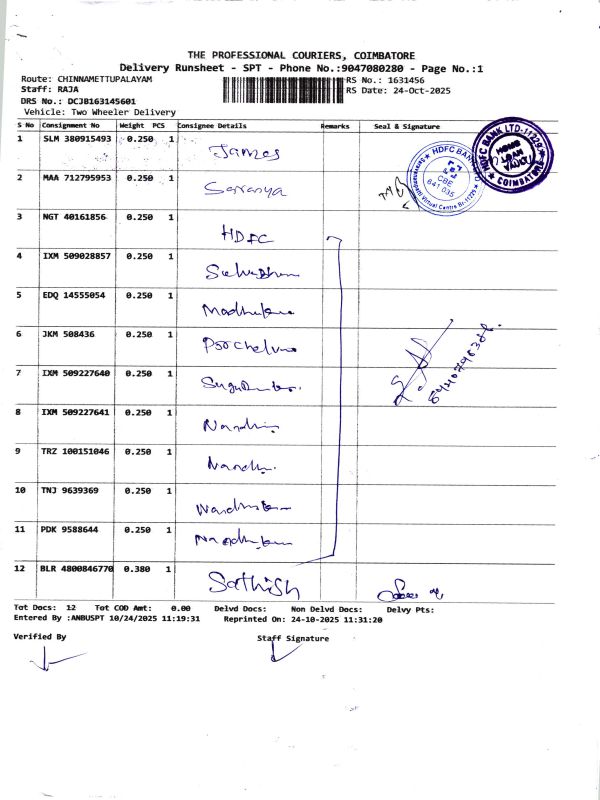 THE PROFESSIONAL COURIERS, COIMBATORE
Delivery Runsheet - SPT - Phone No.:9047080280 - Page No.:1
Route: CHINNAMETTUPALAYAM RS No.: 1631456
Staff: RAJA RS Date: 24-Oct-2025
DRS No.: DCJB163145601
Vehicle: Two Wheeler Delivery
S No Consignment No Weight PCS Consignee Details Remarks Seal & Signature
1 SLM 380915493 0.250 1 James
2 MAA 712795953 0.250 1 Saranya
3 NGT 40161856 0.250 1 HDFC
4 IXM 509028857 0.250 1
5 EDQ 14555054 0.250 1
6 JKM 508436 0.250 1
7 IXM 509227640 0.250 1
8 IXM 509227641 0.250 1
9 TRZ 100151046 0.250 1
10 TNJ 9639369 0.250 1
11 PDK 9588644 0.250 1
12 BLR 4800846770 0.380 1 Sathish
HDFC BANK
CBE
641 035
HDFC BANK LTD-11229
COIMBATORE
Tot Docs: 12 Tot COD Amt: 0.00 Delvd Docs: Non Delvd Docs: Delvy Pts:
Entered By :ANBUSPT 10/24/2025 11:19:31 Reprinted On: 24-10-2025 11:31:20
Verified By Staff Signature